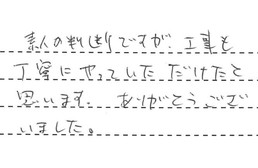 素人の判断ですが、工事も
丁寧にやっていただけたと
思います。ありがとうござ
いました。